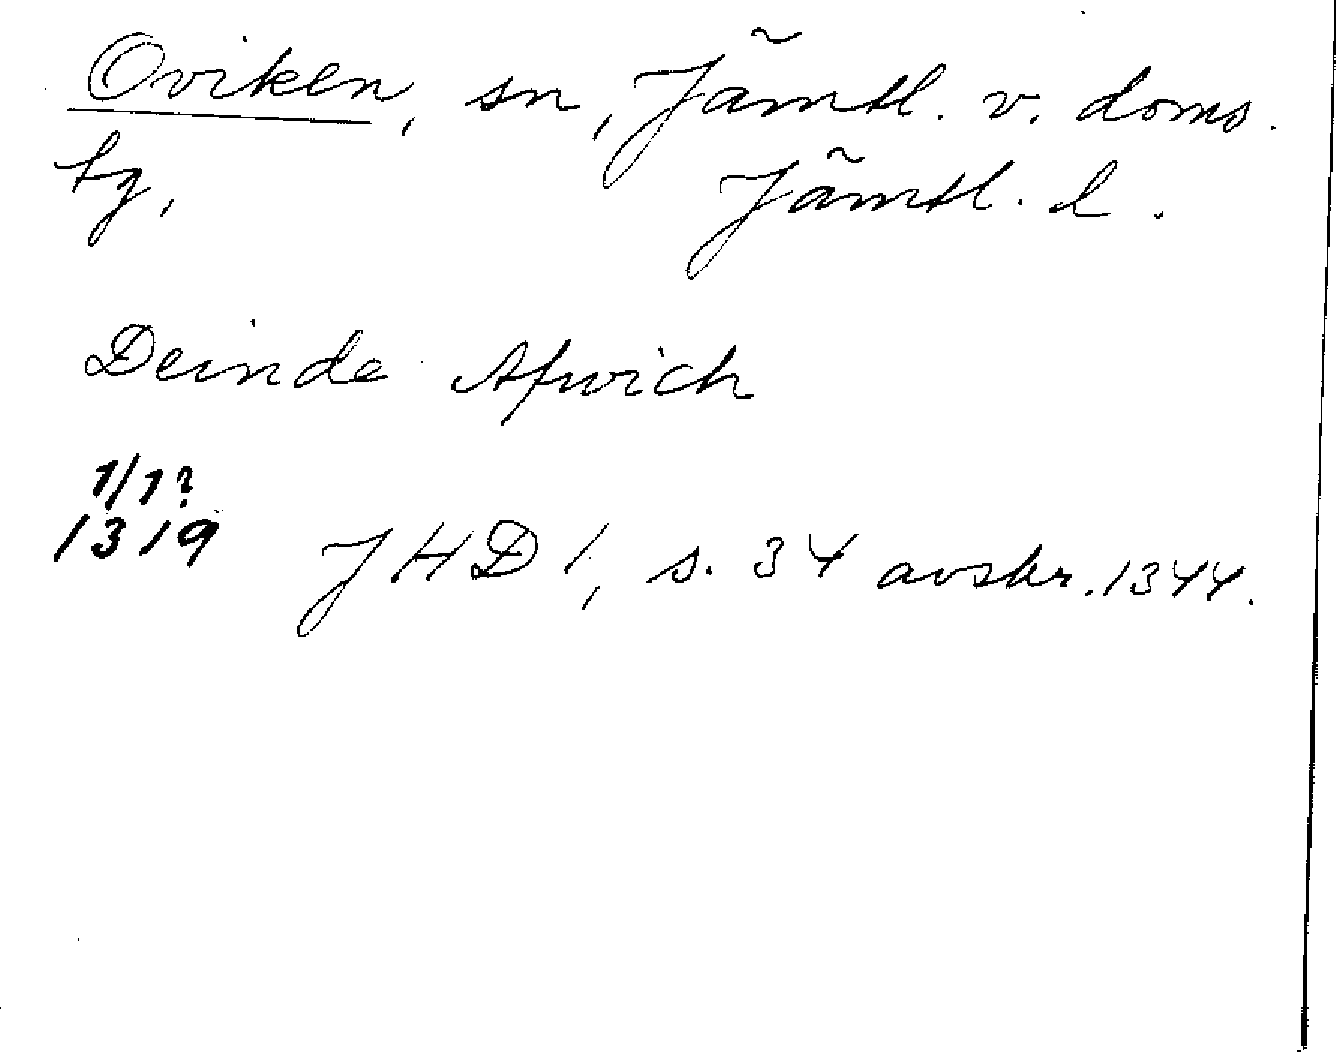 Oviken, sn, Jämtl. v. doms.
tg, Jämtl. l.
Deinde Afwich
1/1?
1319 JHD 1, s. 34 avskr. 1344.